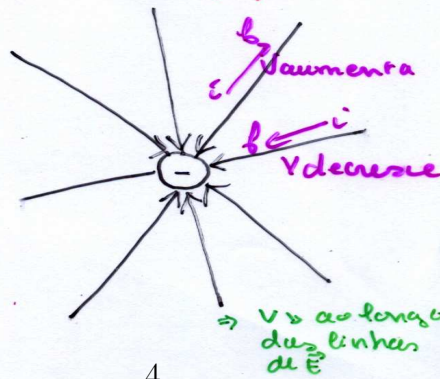 f
V aumenta
i
f i
V decresce
-
⇒ V » ao longo
das linhas
de E⃗
4